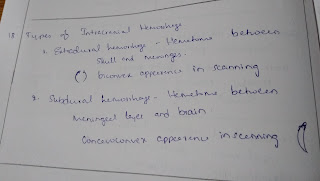 18 Types of Intracranial Hemorrhage
1. Extradural hemorrhage - Hematoma between
Skull and meninges.
() biconvex appearance in scanning
2. Subdural hemorrhage - Hematoma between
Meningeal layer and brain
Concavoconvex appearance in scanning